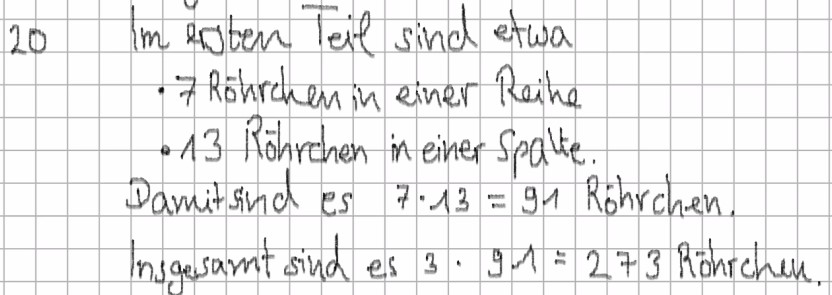 20 Im ersten Teil sind etwa
• 7 Röhrchen in einer Reihe
• 13 Röhrchen in einer Spalte.
Damit sind es 7 · 13 = 91 Röhrchen.
Insgesamt sind es 3 · 91 = 273 Röhrchen.